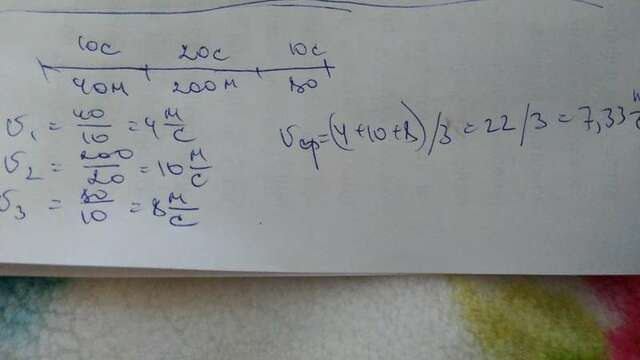 10с 20с 10с
40м 200м 80
υ₁ = 40/10 = 4 м/с
υ₂ = 200/20 = 10 м/с
υ₃ = 80/10 = 8 м/с
υср = (4+10+8)/3 = 22/3 = 7,33 м/с